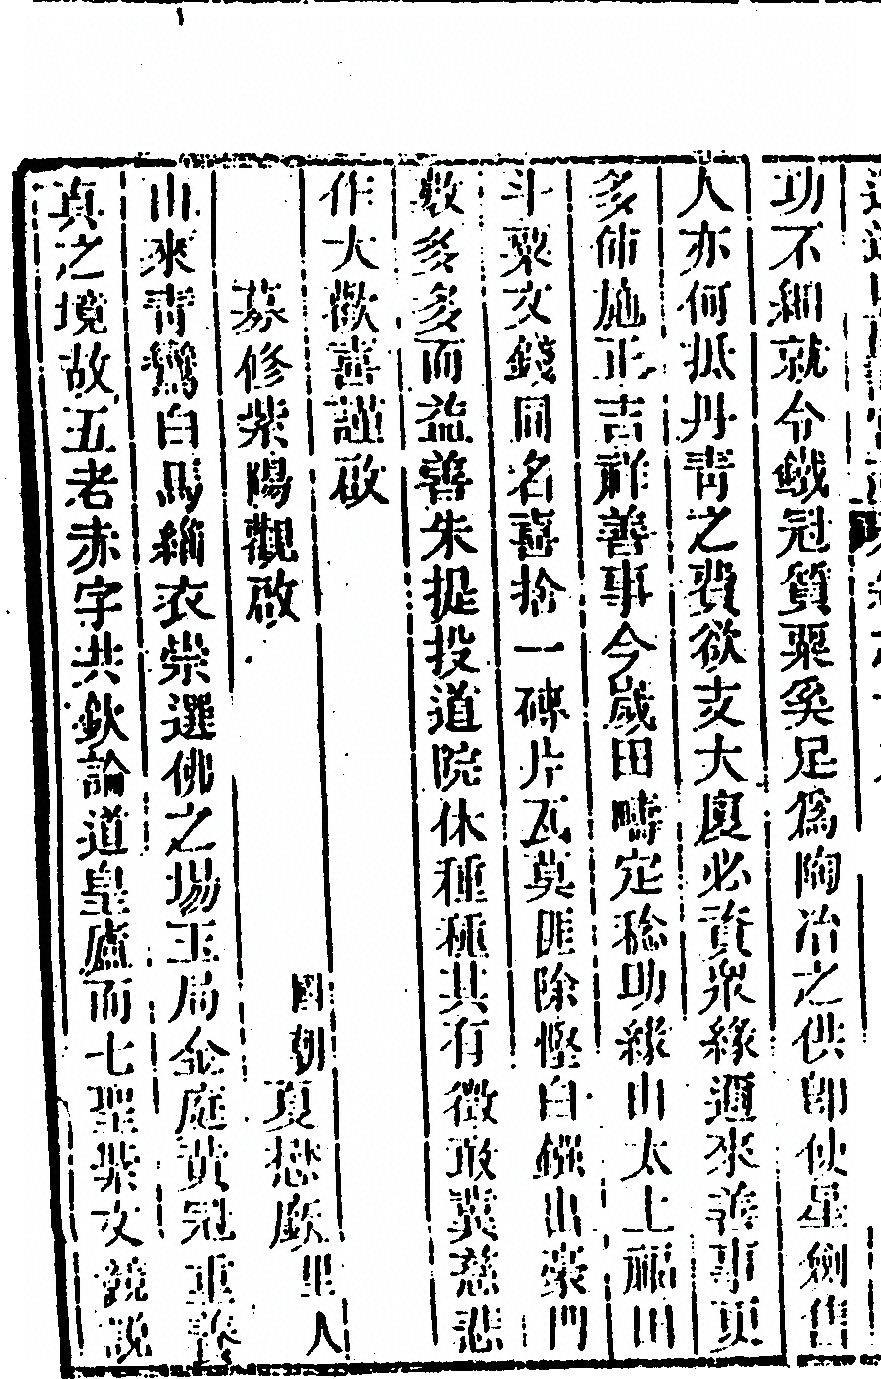 功不細就令鐵冠質粟奚足爲陶冶之供卽使星劍售
人亦何抵丹青之費欲支大廈必資衆緣邇來善事頁
多佈施正吉祥善事今歲田疇定稔功緣山太上福田
斗粟文錢同名喜捨一磚片瓦莫匪除慳自饌出豪門
數多多而益善朱提投道院休種種其有徵敢冀慈悲
作大歡喜謹啟
募修紫陽觀啟 國朝夏懋廠里人
山來青鸞白馬緇衣崇選佛之場玉局金庭黃冠重養
真之境故五者赤字共欽論道皇廬而七聖紫文鏡說